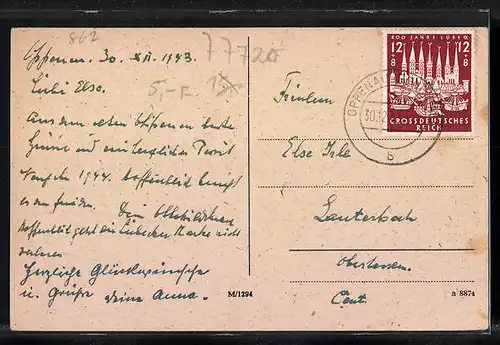 862
77720
5,-
Oppenau, 30. XII. 1943.
Liebe Else.
Aus dem alten Oppenau beste
Grüsse und ein herzliches Prosit
Neujahr 1944. Hoffentlich bringt
es den Frieden. Dein
hoffentlich geht die Lübecker Marke nicht
verloren
Herzliche Glückwünsche
u. Grüsse deine Anna.
Fräulein
Else
Lauterbach
Oberhessen.
M/1294
a 8874
800 JAHRE LÜBECK
12+8
12+8
GROSSDEUTSCHES
REICH
OPPENAU
30.12
b